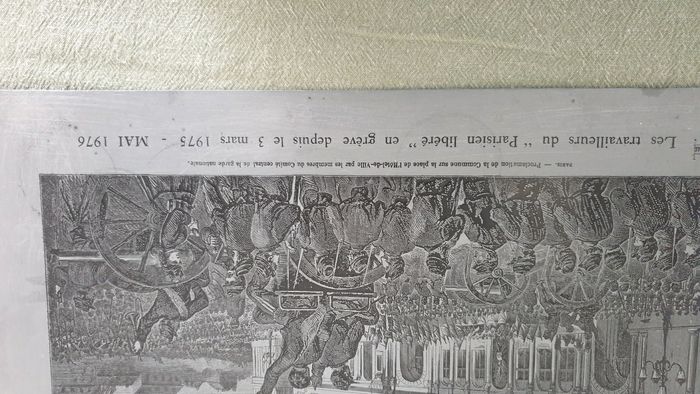 PARIS. — Proclamation de la Commune sur la place de l'Hôtel-de-Ville par les membres du Comité central de la garde nationale.
Les travailleurs du "Parisien libéré" en grève depuis le 3 mars 1975 - MAI 1976